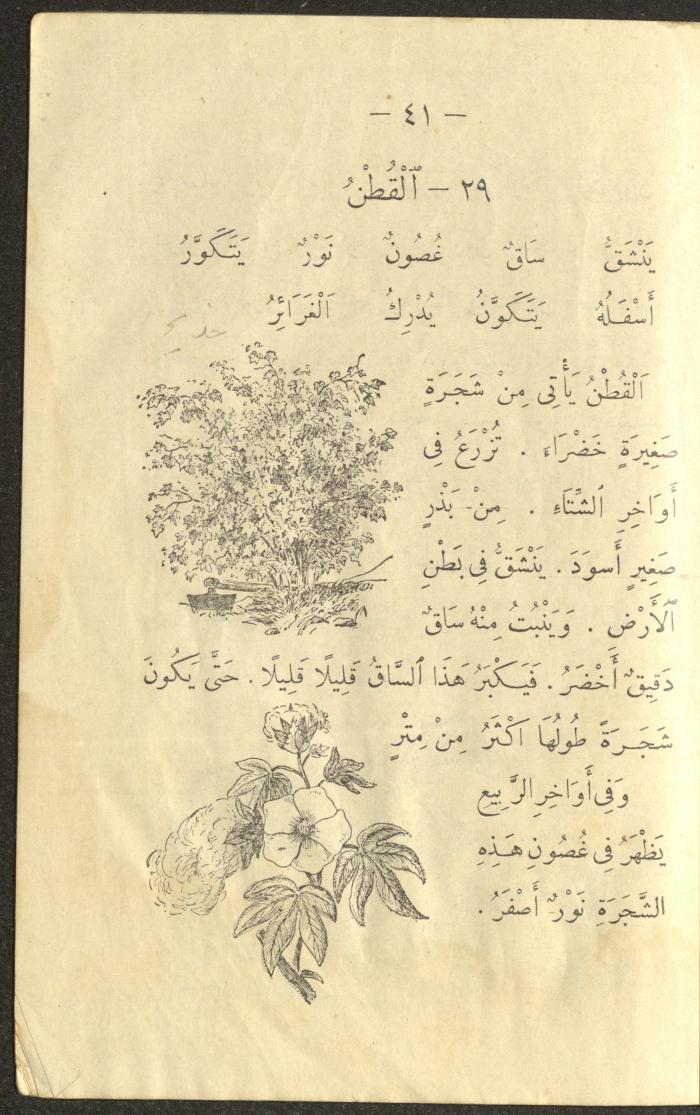 — ٤١ —
٢٩ — ٱلْقُطْنُ
يَنْشَقُّ سَاقٌ غُصُونٌ نَوْرٌ يَتَكَوَّرُ
أَسْفَلُهُ يَتَكَوَّنُ يُدْرِكُ اَلْغَرَائِرُ
اَلْقُطْنُ يَأْتِى مِنْ شَجَرَةٍ
صَغِيرَةٍ خَضْرَاءَ . تُزْرَعُ فِى
أَوَاخِرِ ٱلشِّتَاءِ . مِنْ بَذْرٍ
صَغِيرٍ أَسوَدَ . يَنْشَقُّ فِى بَطْنِ
ٱلْأَرْضِ . وَيَنْبُتُ مِنْهُ سَاقٌ
دَقِيقٌ أَخْضَرُ . فَيَكْبَرُ هَذَا ٱلسَّاقُ قَلِيلًا قَلِيلًا . حَتَّى يَكُونَ
شَجَرَةً طُولُهَا اَكْثَرُ مِنْ مِتْرٍ
وَفِى أَوَاخِرِ الرَّبِيعِ
يَظْهَرُ فِى غُصُونِ هَذِهِ
الشَّجَرَةِ نَوْرٌ أَصْفَرُ .